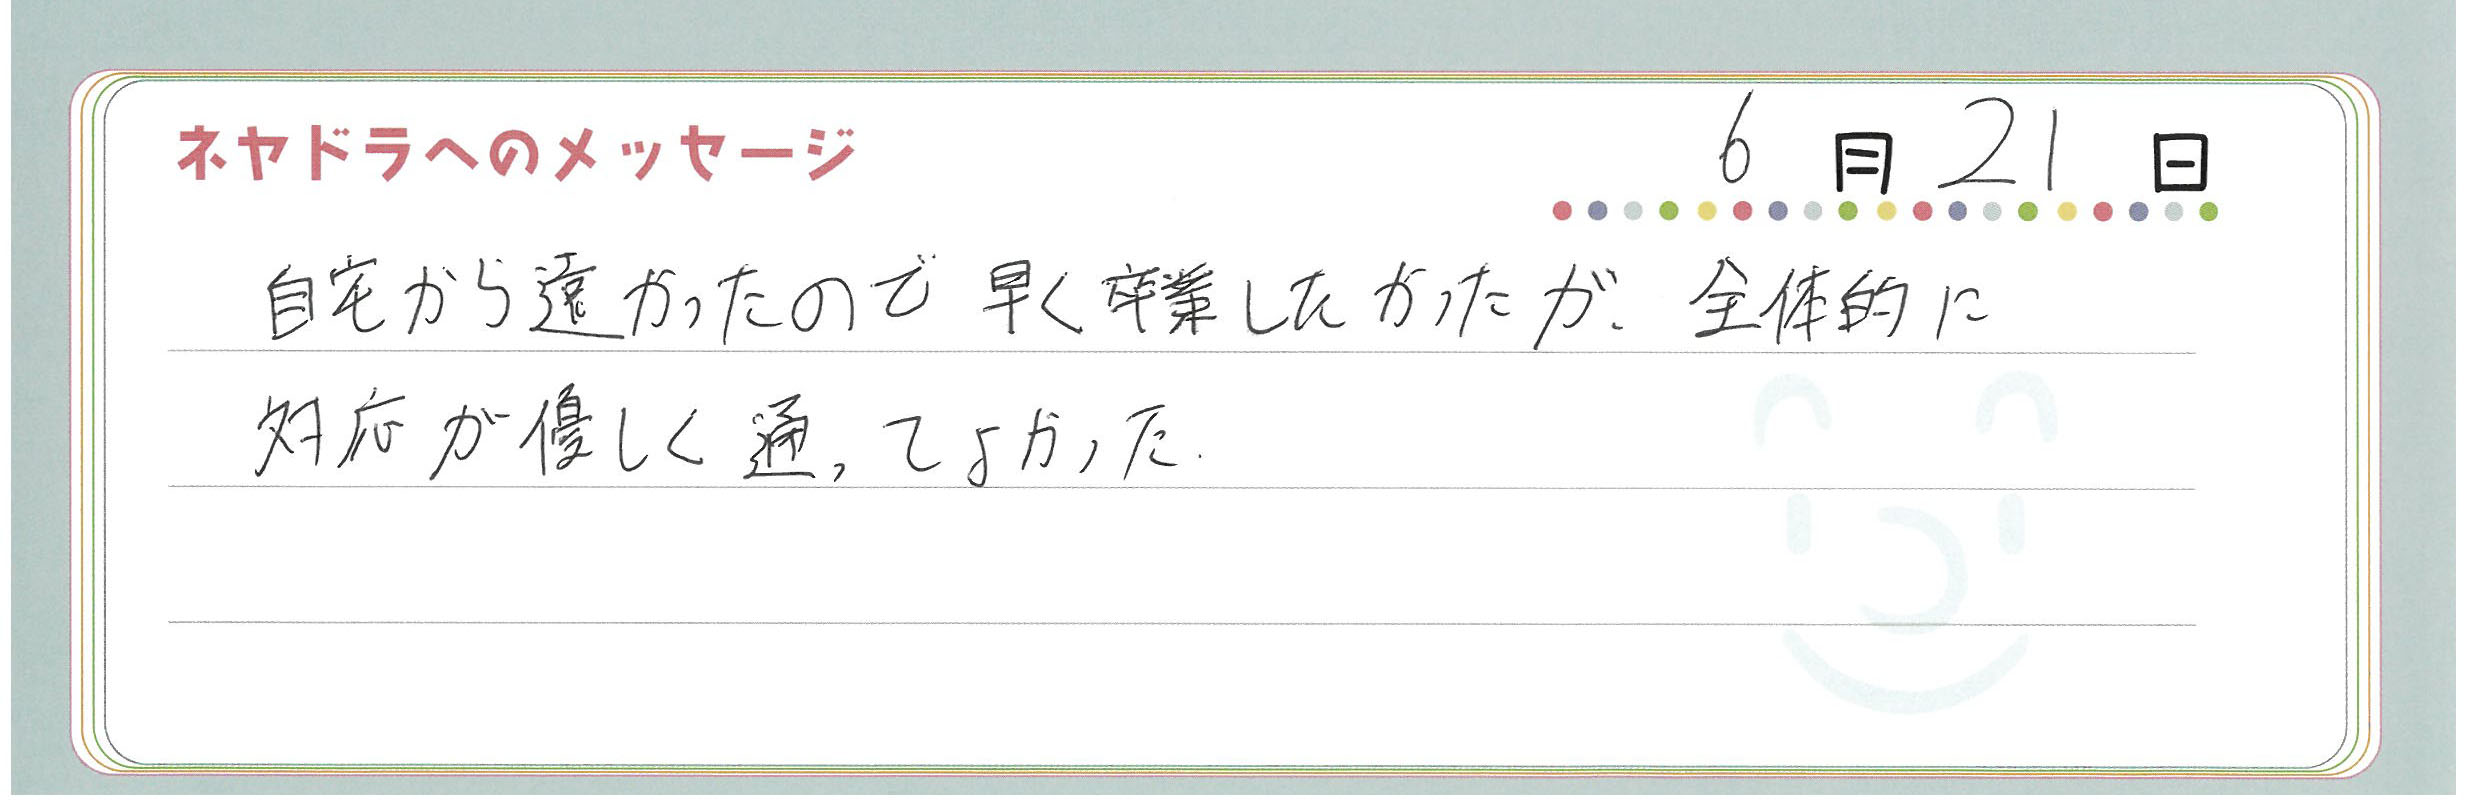 ネヤドラへのメッセージ 6月21日
自宅から遠かったので早く卒業したかったが、全体的に
対応が優しく通ってよかった.